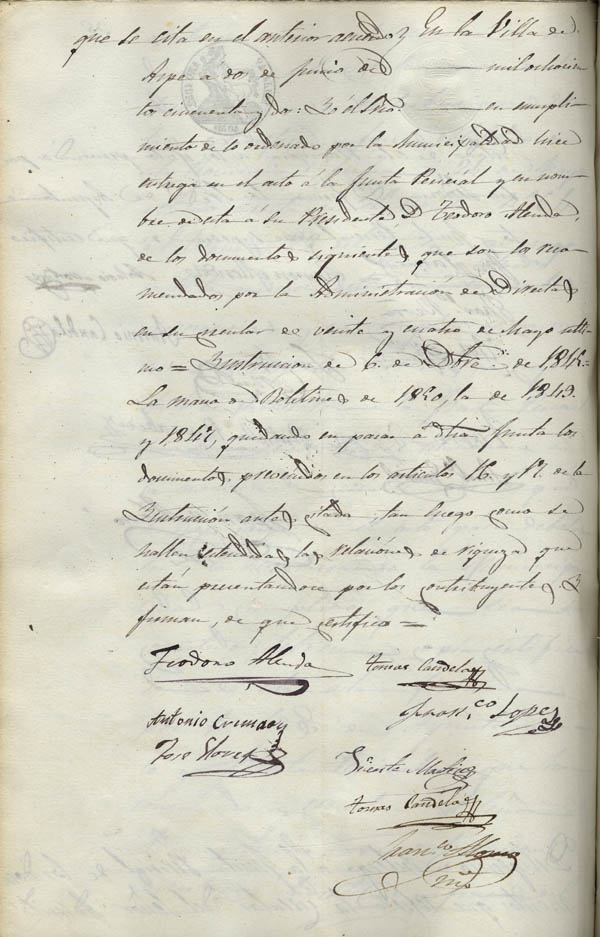 que se cita en el anterior acuerdo, En la Villa de
Aspe á dos de Junio de mil ochocien
tos cincuenta y dos: Yo el Srio. en cumpli
miento de lo ordenado por la Municipalidad hice
entrega en el acto á la Junta Pericial y en nom
bre de esta á su Presidente D. Teodoro Alenda,
de los documentos siguientes, que son los reco
mendados por la Administración de Directas
en su circular de veinte y cuatro de Mayo ulti
mo = Instruccion de 6. de Dbre. de 1845.=
La mano de Boletines de 1850, la de 1849.
y 1847, quedando en pasar á dha Junta los
documentos prevenidos en los articulos 16. y 17. de la
Instrucción antes citada, tan luego como se
hallen estendidas las relaciones de riqueza que
están presentandose por los contribuyentes, y
firman, de que certifico =
Teodoro Alenda
tomas Candela
Franco. Lopez
Antonio Cremades
Jose
Vicente
tomas Candela
Franco.